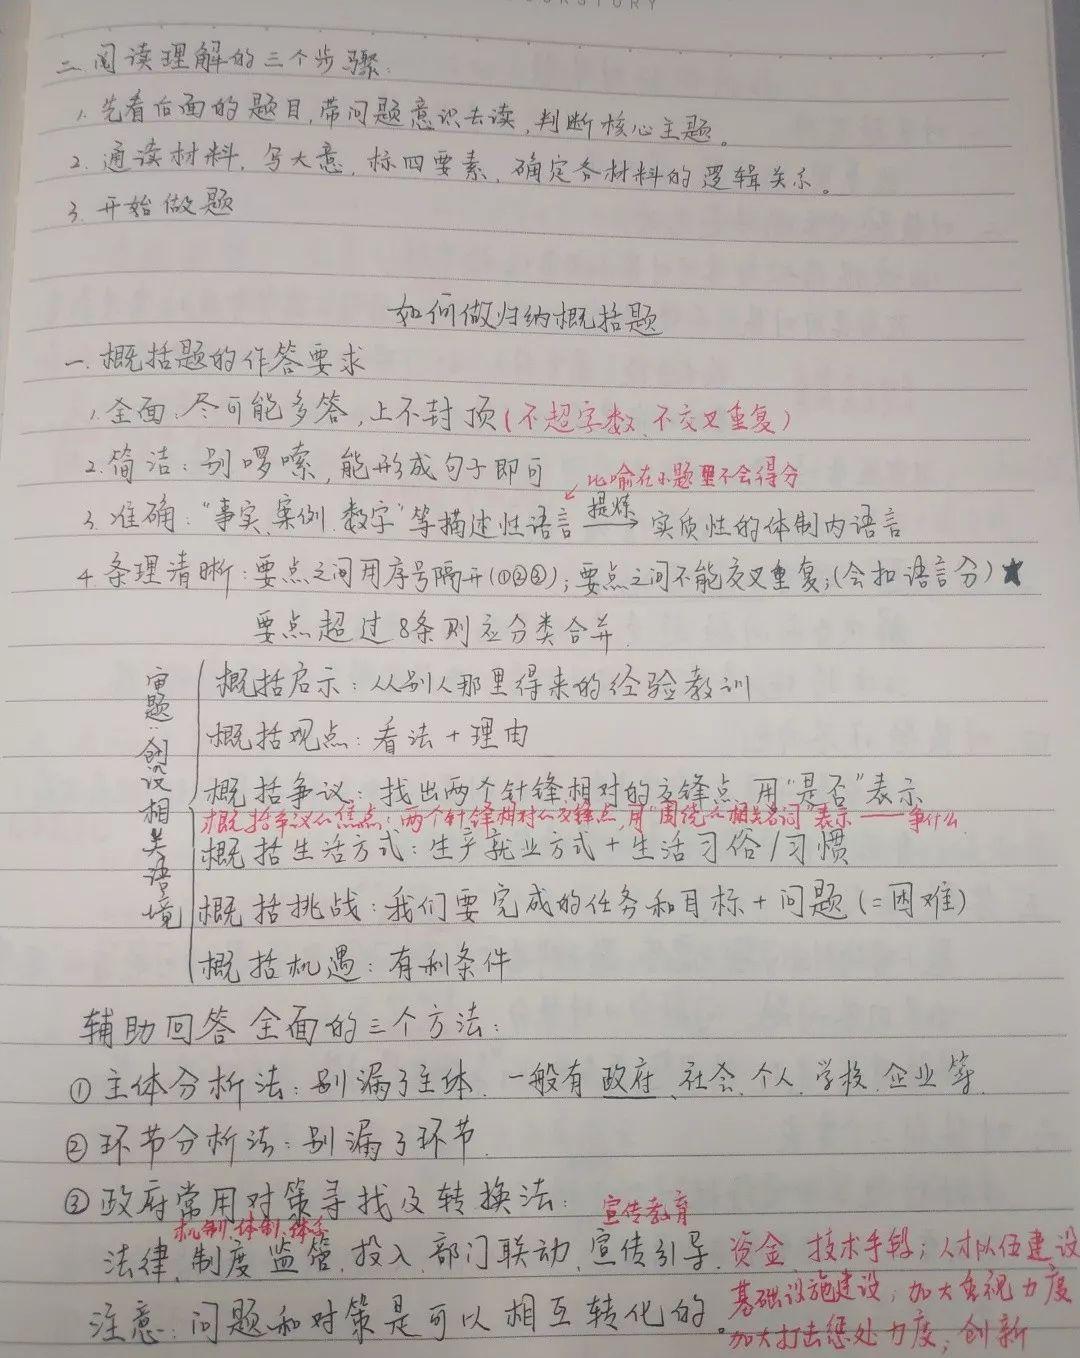 二.阅读理解的三个步骤:
1.先看后面的题目,带问题意识去读,判断核心主题。
2.通读材料,写大意,标四要素,确定各材料的逻辑关系。
3.开始做题
如何做归纳概括题
一.概括题的作答要求
1.全面:尽可能多答,上不封顶(不超字数、不交叉重复)
2.简洁:别啰嗦,能形成句子即可
比喻在小题里不会得分
3.准确:"事实、案例、数字"等描述性语言 提炼→ 实质性的体制内语言
4.条理清晰:要点之间用序号隔开(①②③);要点之间不能交叉重复;(会扣语言分)★
要点超过8条则应分类合并.
审题:创设相关语境
概括启示:从别人那里得来的经验教训
概括观点:看法+理由
概括争议:找出两个针锋相对的交锋点,用"是否"表示
概括争议的焦点:两个针锋相对的交锋点,用"围绕之相关名词"表示——争什么
概括生活方式:生产就业方式+生活习俗/习惯
概括挑战:我们要完成的任务和目标+问题(=困难)
概括机遇:有利条件
辅助回答全面的三个方法:
①主体分析法:别漏了主体.一般有政府、社会、个人、学校、企业等.
②环节分析法:别漏了环节.
③政府常用对策寻找及转换法:
机制、体制、体系
宣传教育
法律、制度、监管、投入、部门联动、宣传引导、资金、技术手段;人才队伍建设
基础设施建设;加大重视力度
注意:问题和对策是可以相互转化的。
加大打击惩处力度;创新